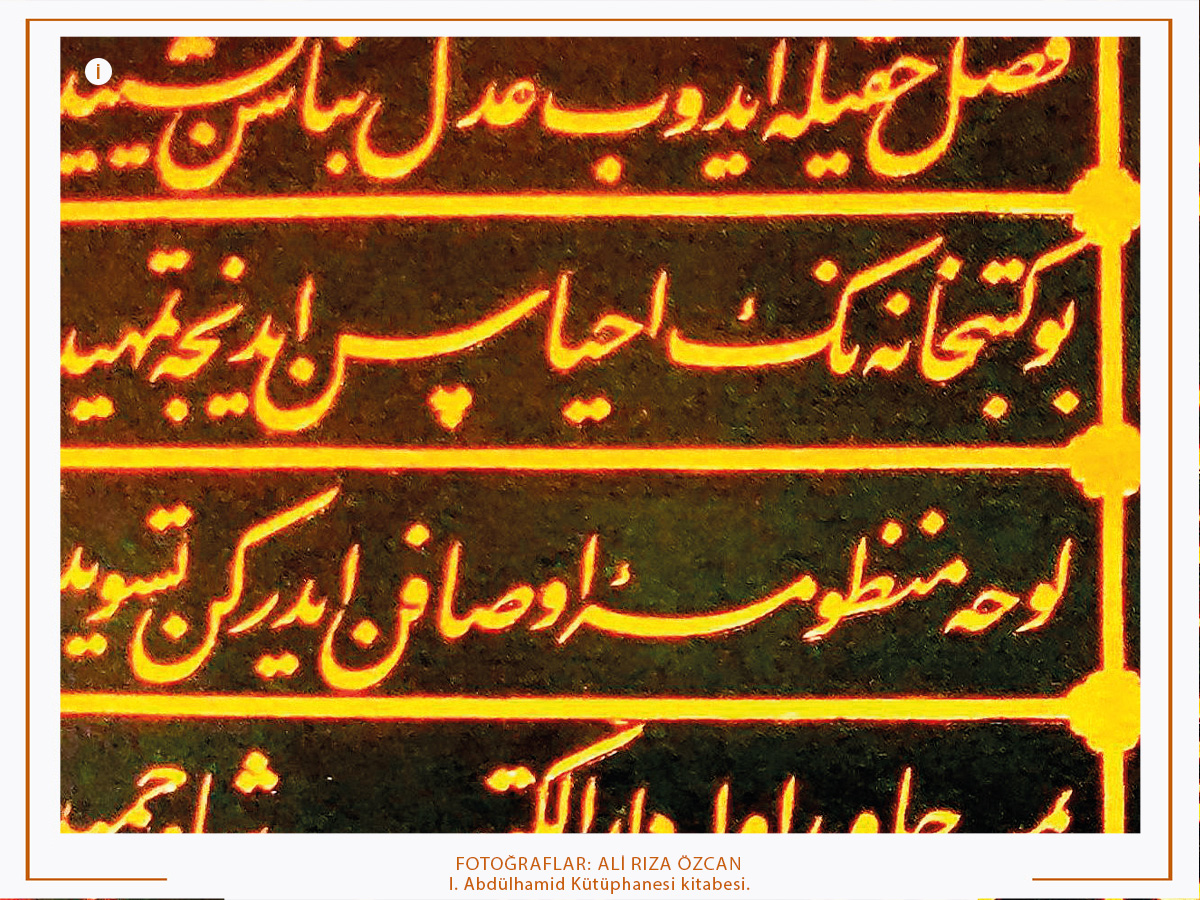 فصل حقیله ایدوب عدل بناسن تشیید
بو کتبخانه نك احیاسن ایدنجه تمهید
لوحه منظومۀ اوصافن ایدركن تسوید
FOTOĞRAFLAR: ALİ RIZA ÖZCAN
I. Abdülhamid Kütüphanesi kitabesi.